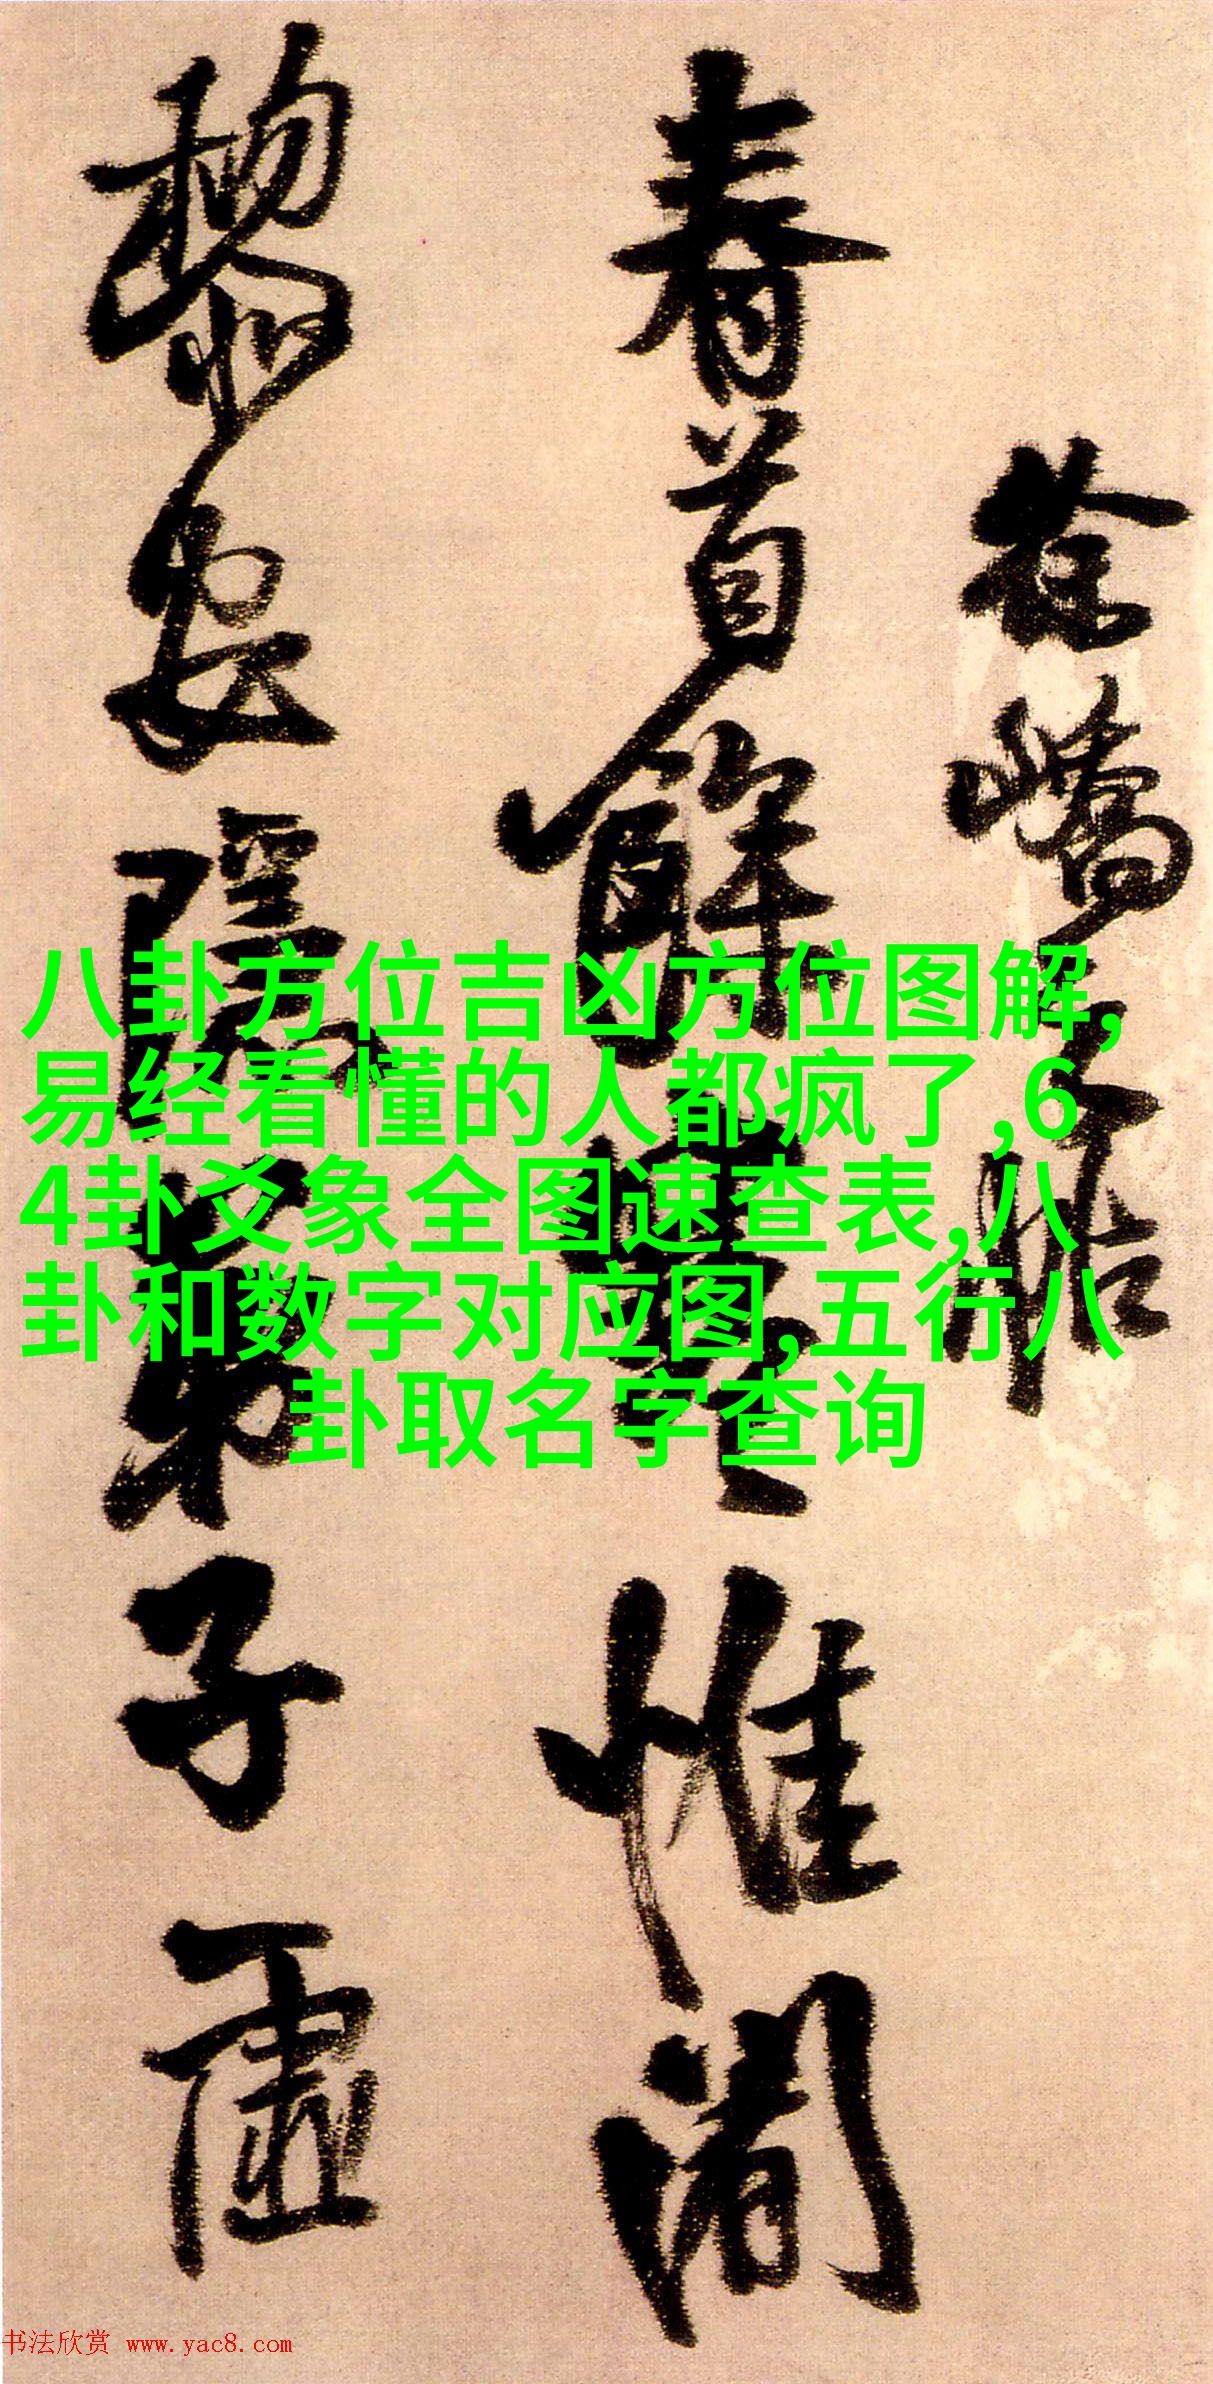 徐嶠之帖
春首餘寒惟闍
黎安隱弟子虛
八卦方位吉凶方位图解,
易经看懂的人都疯了,6
4卦爻象全图速查表,八
卦和数字对应图,五行八
卦取名字查询
书法欣赏 www.yac8.com